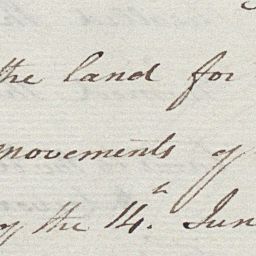 the land for
movements of
by the 14.th Jun